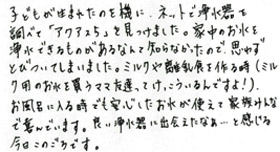 子どもが生まれたのを機に、ネットで浄水器を
調べて「アクアよろ」を見つけました。家中のお水を
浄水できるものがあるなんて知らなかったので、思わず
とびついてしまいました。ミルクや離乳食を作る時（ミル
ク用のお水を買うママ友達ってけっこういるんですよ！）、
お風呂に入る時でも安心したお水が使えて家族みんな
で喜んでいます。良い浄水器に出会えたなあ…と感じる
今日このごろです。